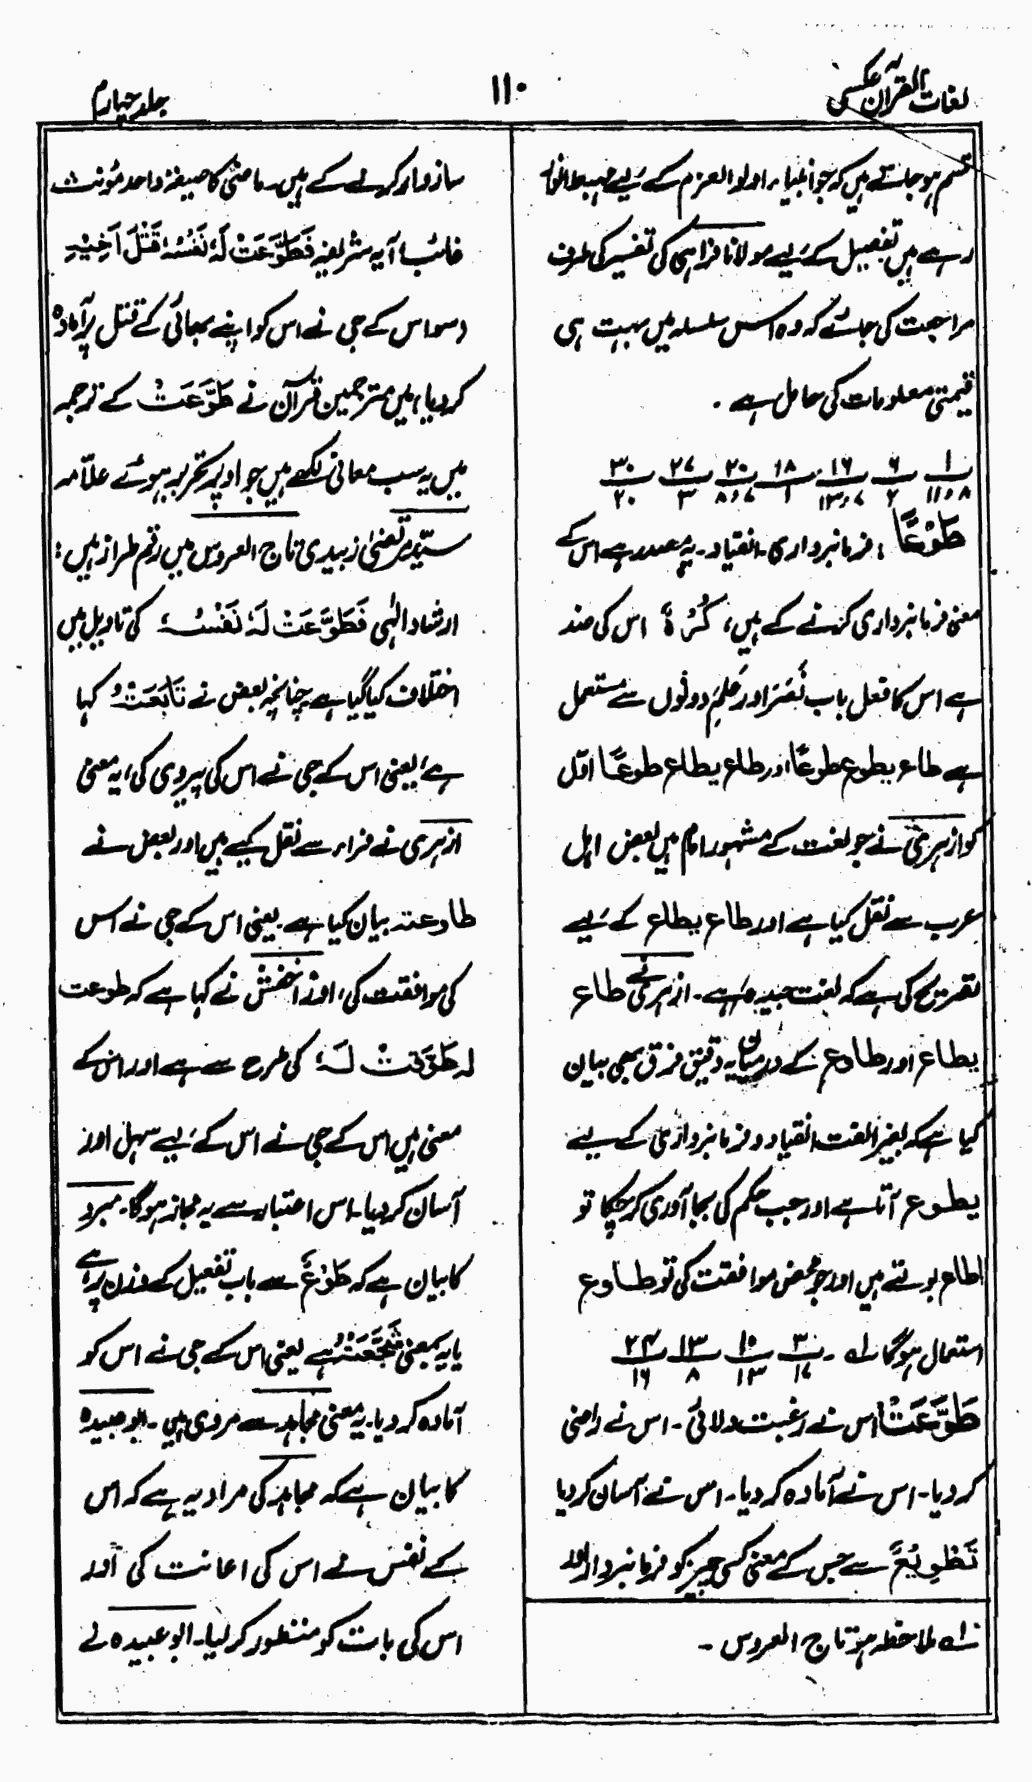 لغات القرآن عکسی
۱۱۰
جلد چہارم
قسم ہو جاتے ہیں کہ جو انبیاء اولوالعزم کے لیے مہبط انوار
رہے ہیں تفصیل کے لیے مولانا فراہی کی تفسیر کی طرف
مراجعت کی جائے کہ وہ اس سلسلہ میں بہت ہی
قیمتی معلومات کی حامل ہے ۔
۱ ۶ ۱۶ ۱۸ ۲۰ ۲۷ ۳۰
۱۱،۸ ۲ ۱۳،۷ ۱ ۸،۷ ۳ ۲۰
طَوْعًا : فرمانبرداری۔ انقیاد۔ یہ مصدر ہے اس کے
معنی فرمانبرداری کرنے کے ہیں، کُرْہٌ اس کی ضد
ہے اس کا فعل باب نَصَرَ اور عَلِمَ دونوں سے مستعمل
ہے طاع یطوع طوعًا اور طاع یطاع طوعًا اول
کو ازہری نے جو لغت کے مشہور امام ہیں بعض اہل
عرب سے نقل کیا ہے اور طاع یطاع کے لیے
تصریح کی ہے کہ لغت جیدہ ہے۔ ازہری نے طاع
یطاع اور طاوع کے درمیان یہ دقیق فرق بھی بیان
کیا ہے کہ بغیر الفت انقیاد و فرمانبرداری کے لیے
یطوع آتا ہے اور جب حکم کی بجا آوری کر چکا تو
اطاع بولتے ہیں اور جو محض موافقت کی تو طاوع
استعمال ہوگا لہ ۔ ۳ ۱۰ ۱۳ ۲۴
۱۷ ۱۳ ۸ ۱۶
طَوَّعَتْ اس نے رغبت دلائی ۔ اس نے راضی
کر دیا۔ اس نے آمادہ کر دیا۔ اس نے آسان کر دیا
تَطْوِیْعٌ سے جس کے معنی کسی چیز کو فرمانبردار اور
لہ ملاحظہ ہو تاج العروس ۔
سازوار کرنے کے ہیں۔ ماضی کا صیغہ واحد مؤنث
غائب آیہ شریفہ فَطَوَّعَتْ لَہٗ نَفْسُہٗ قَتْلَ اَخِیْہِ
(سو اس کے جی نے اس کو اپنے بھائی کے قتل پر آمادہ
کر دیا) میں مترجمین قرآن نے طَوَّعَتْ کے ترجمہ
میں یہ سب معانی لکھے ہیں جو اوپر تحریر ہوئے علّامہ
سیّد مرتضیٰ زبیدی تاج العروس میں رقم طراز ہیں :
ارشاد الٰہی فَطَوَّعَتْ لَہٗ نَفْسُہٗ کی تاویل میں
اختلاف کیا گیا ہے چنانچہ بعض نے تَابَعَتْہُ کہا
ہے، یعنی اس کے جی نے اس کی پیروی کی، یہ معنی
ازہری نے فراء سے نقل کیے ہیں اور بعض نے
طاوعتہ بیان کیا ہے یعنی اس کے جی نے اس
کی موافقت کی، اور اخفش نے کہا ہے کہ طوعت
لہ طَوَّقَتْ لَہٗ کی طرح سے ہے اور اس کے
معنی ہیں اس کے جی نے اس کے لیے سہل اور
آسان کر دیا۔ اس اعتبار سے یہ مجاز ہوگا۔ مبرد
کا بیان ہے کہ طَوَّعَ سے باب تفعیل کے وزن پر ہے
یا یہ بمعنی شَجَّعَتْہُ ہے یعنی اس کے جی نے اس کو
آمادہ کر دیا۔ یہ معنی مجاہد سے مروی ہیں ۔ ابو عبیدہ
کا بیان ہے کہ مجاہد کی مراد یہ ہے کہ اس
کے نفس نے اس کی اعانت کی اور
اس کی بات کو منظور کر لیا۔ ابو عبیدہ نے